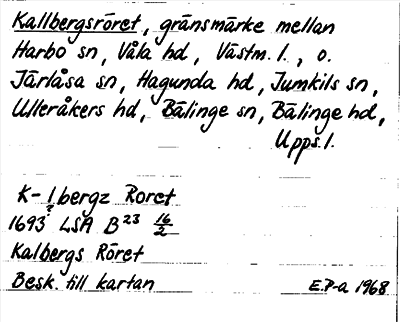 Kallbergsröret, gränsmärke mellan
Harbo sn, Våla hd, Västm. l., o.
Järlåsa sn, Hagunda hd, Jumkils sn,
Ulleråkers hd, Bälinge sn, Bälinge hd,
Upps. l.
K-lbergz Roret
?
1693 LSA B23 16/2
Kalbergs Röret
Besk. till kartan
E.P-a 1968